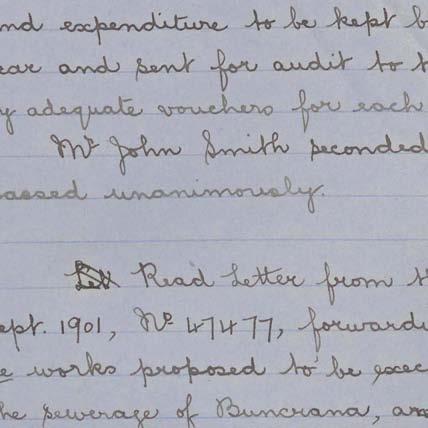 nd expenditure to be kept b
ear and sent for audit to t
y adequate vouchers for each
Mr John Smith seconded
passed unanimously.
Read Letter from t
ept. 1901, No 47477, forwardi
e works proposed to be exec
he sewerage of Buncrana, an